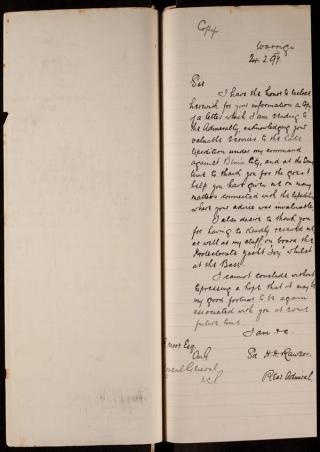 Copy
Warrigi
24.2.97.
Sir
I have the honor to enclose
herewith for your information a copy
of a letter which I am sending to
the Admiralty, acknowledging your
valuable services to the late
Expedition under my command
against Benin City, and at the same
time to thank you for the great
help you have given us on many
matters connected with the Expedition
where your advice was invaluable.
I also desire to thank you
for having so kindly received me
as well as my staff on board the
Protectorate Yacht "Ivy" whilst
at the Base.
I cannot conclude without
expressing a hope that it may be
my good fortune to be again
associated with you at some
future time.
I am &c.
Moor Esq.
Sd H. H. Rawson
Rear Admiral.
General